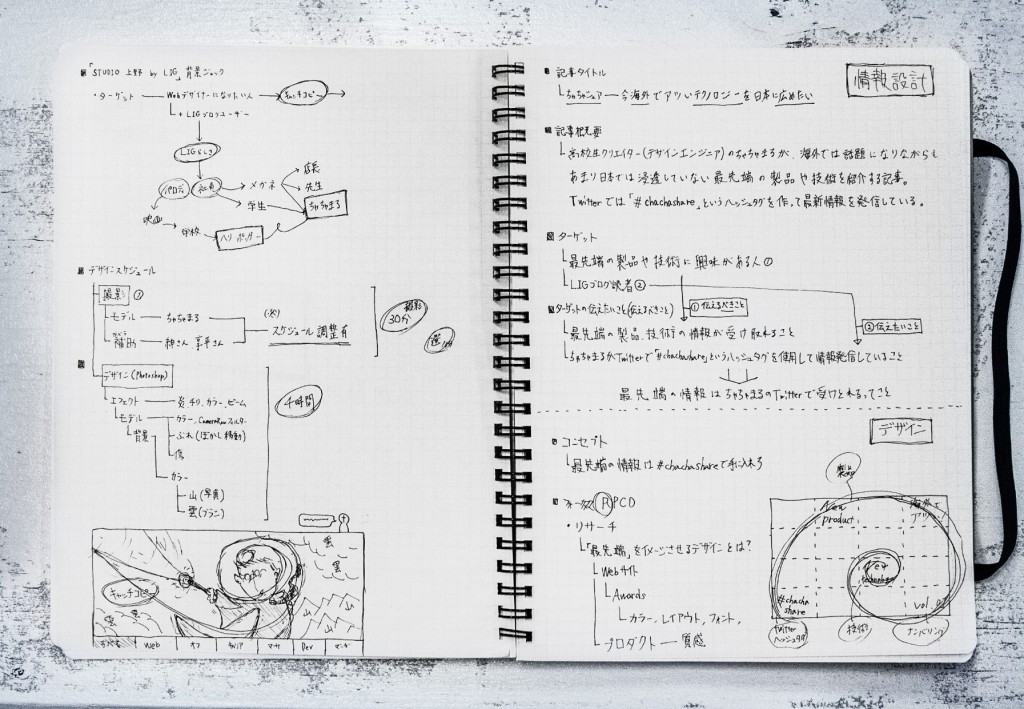 「STUDIO 上野 by LIG」背景ジャック
・ターゲット — Webデザイナーになりたい人 → キャッチコピー →
+ LIGブログユーザー
LIGらしさ
パロディ 社員 → メガネ 店長
先生
学生 ちゃちゃまる
映画 → 学校 → ハリーポッター
デザインスケジュール
撮影 ①
モデル — ちゃちゃまる
スケジュール調整有
補助 — 神さん
撮影
30分
デザイン(Photoshop)
エフェクト — 炎、チリ、カラー、ビーム
4時間
モデル — カラー、CameraRawフィルター
背景 ぶれ(ぼかし移動)
傷
カラー
山(写真)
雲(ブラシ)
雲
雲
キャッチコピー
すべて Web オフ Dev
情報設計
記事タイトル
ちゃちゃシェア — 今海外でアツいテクノロジーを日本に広めたい
記事概要
高校生クリエイター(デザインエンジニア)のちゃちゃまるが、海外では話題になりながらも
あまり日本では浸透していない最先端の製品や技術を紹介する記事。
Twitterでは「#chachashare」というハッシュタグを作って最新情報を発信している。
ターゲット
最先端の製品や技術に興味がある人①
LIGブログ読者②
ターゲットの伝えたいこと(伝えるべきこと)
①伝えるべきこと
②伝えたいこと
最先端の製品、技術の情報が受け取れること
ちゃちゃまるがTwitterで「#chachashare」というハッシュタグを使用して情報発信していること
最先端の情報はちゃちゃまるのTwitterで受けとれるってこと
デザイン
コンセプト
最先端の情報は#chachashareで手に入れろ
製品
RPCD
New
product
海外で
アツい!
・リサーチ
「最先端」をイメージさせるデザインとは?
Webサイト
Awards
カラー、レイアウト、フォント、
プロダクト — 質感
#chacha
share
vol.
Twitter
ハッシュタグ
技術
ナンバリング